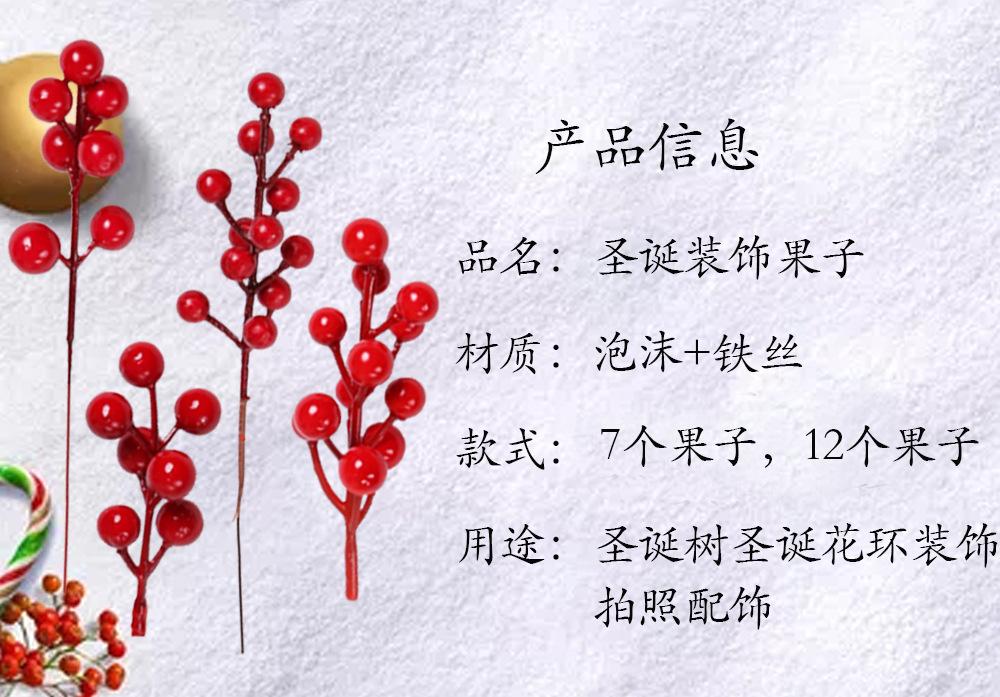 产品信息
品名：圣诞装饰果子
材质：泡沫+铁丝
款式：7个果子，12个果子
用途：圣诞树圣诞花环装饰
拍照配饰